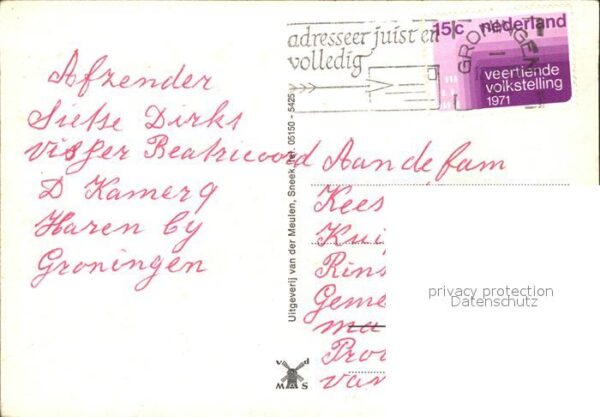 adresseer juist en
volledig
GRONINGEN
15c nederland
veertiende
volkstelling
1971
Afzender
Sietse Dirks
Visser Beatrixoord
D Kamer 9
Haren by
Groningen
Uitgeverij van der Meulen, Sneek, tel. 05150 - 5425
Aan de fam
Kees
Kui
Rins
Geme
ma
Prov
van
privacy protection
Datenschutz
v d
M S